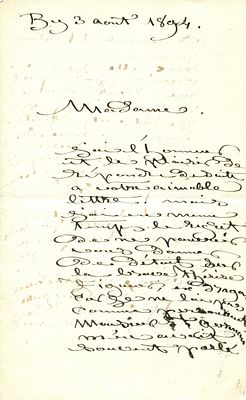 By 3 août 1894.
Madame.
J'ai l'honneur
et le plaisir de
répondre de suite
à votre aimable
lettre, mais
j'ai en même
temps le regret
de ne pouvoir
vous donner
de détail sur
la brave Thérèse
Figueur,
car je ne l'ai pas
connue personnellement
Monsieur
m'en avait
souvent parlé